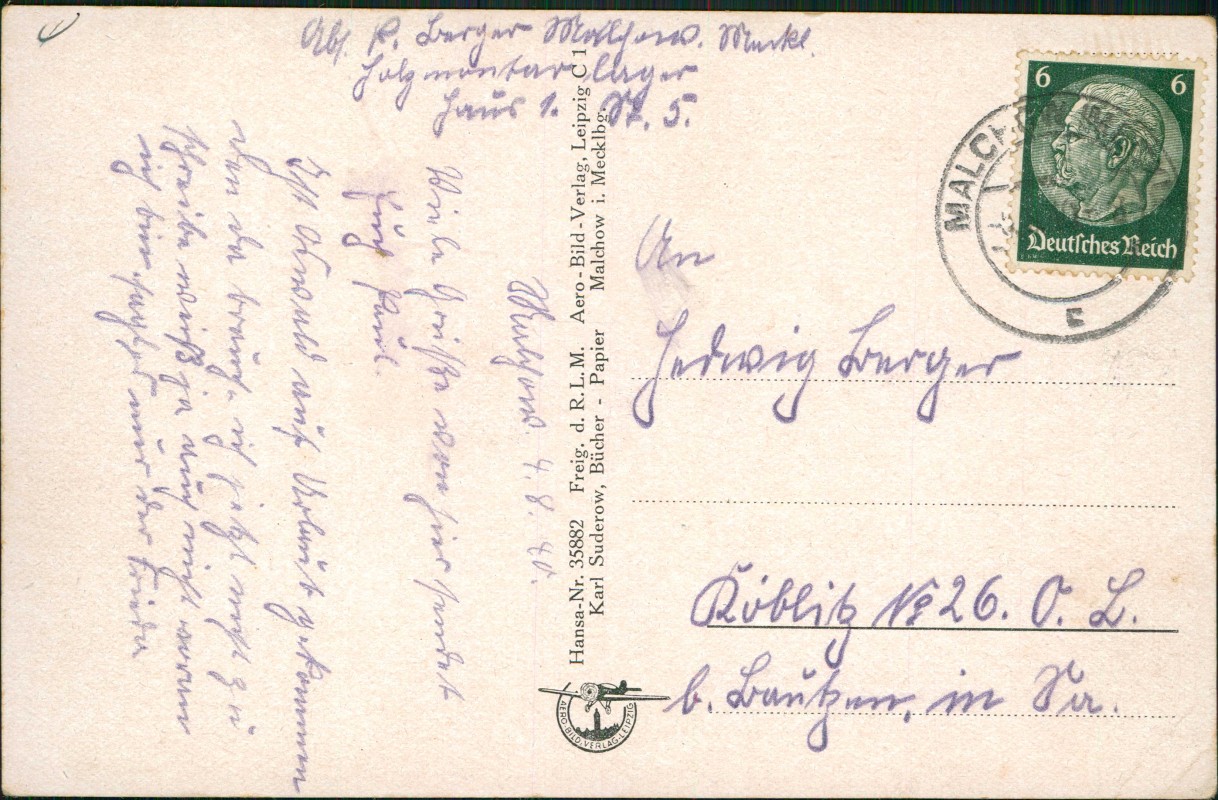 Abs. P. Berger Malchow. Meckl.
Holzmontar lager
Haus 1. St. 5.
Malchow. 4. 8. 40.
Viele Grüße von hier sendet
Euch Paul.
Ist Oswald auf Urlaub gekommen
den da brauch ich jetzt nicht zu
schreibe weiß ja auch nicht warum
ich bin nur der Frieda
Hansa-Nr. 35882 Freig. d. R.L.M. Aero-Bild-Verlag, Leipzig C 1
Karl Suderow, Bücher - Papier Malchow i. Mecklbg.
AERO-BILD-VERLAG-LEIPZIG
6 6
Deutsches Reich
MALCHOW
An
Hedwig Berger
Köblitz № 26. O. L.
b. Bautzen, in Sa.